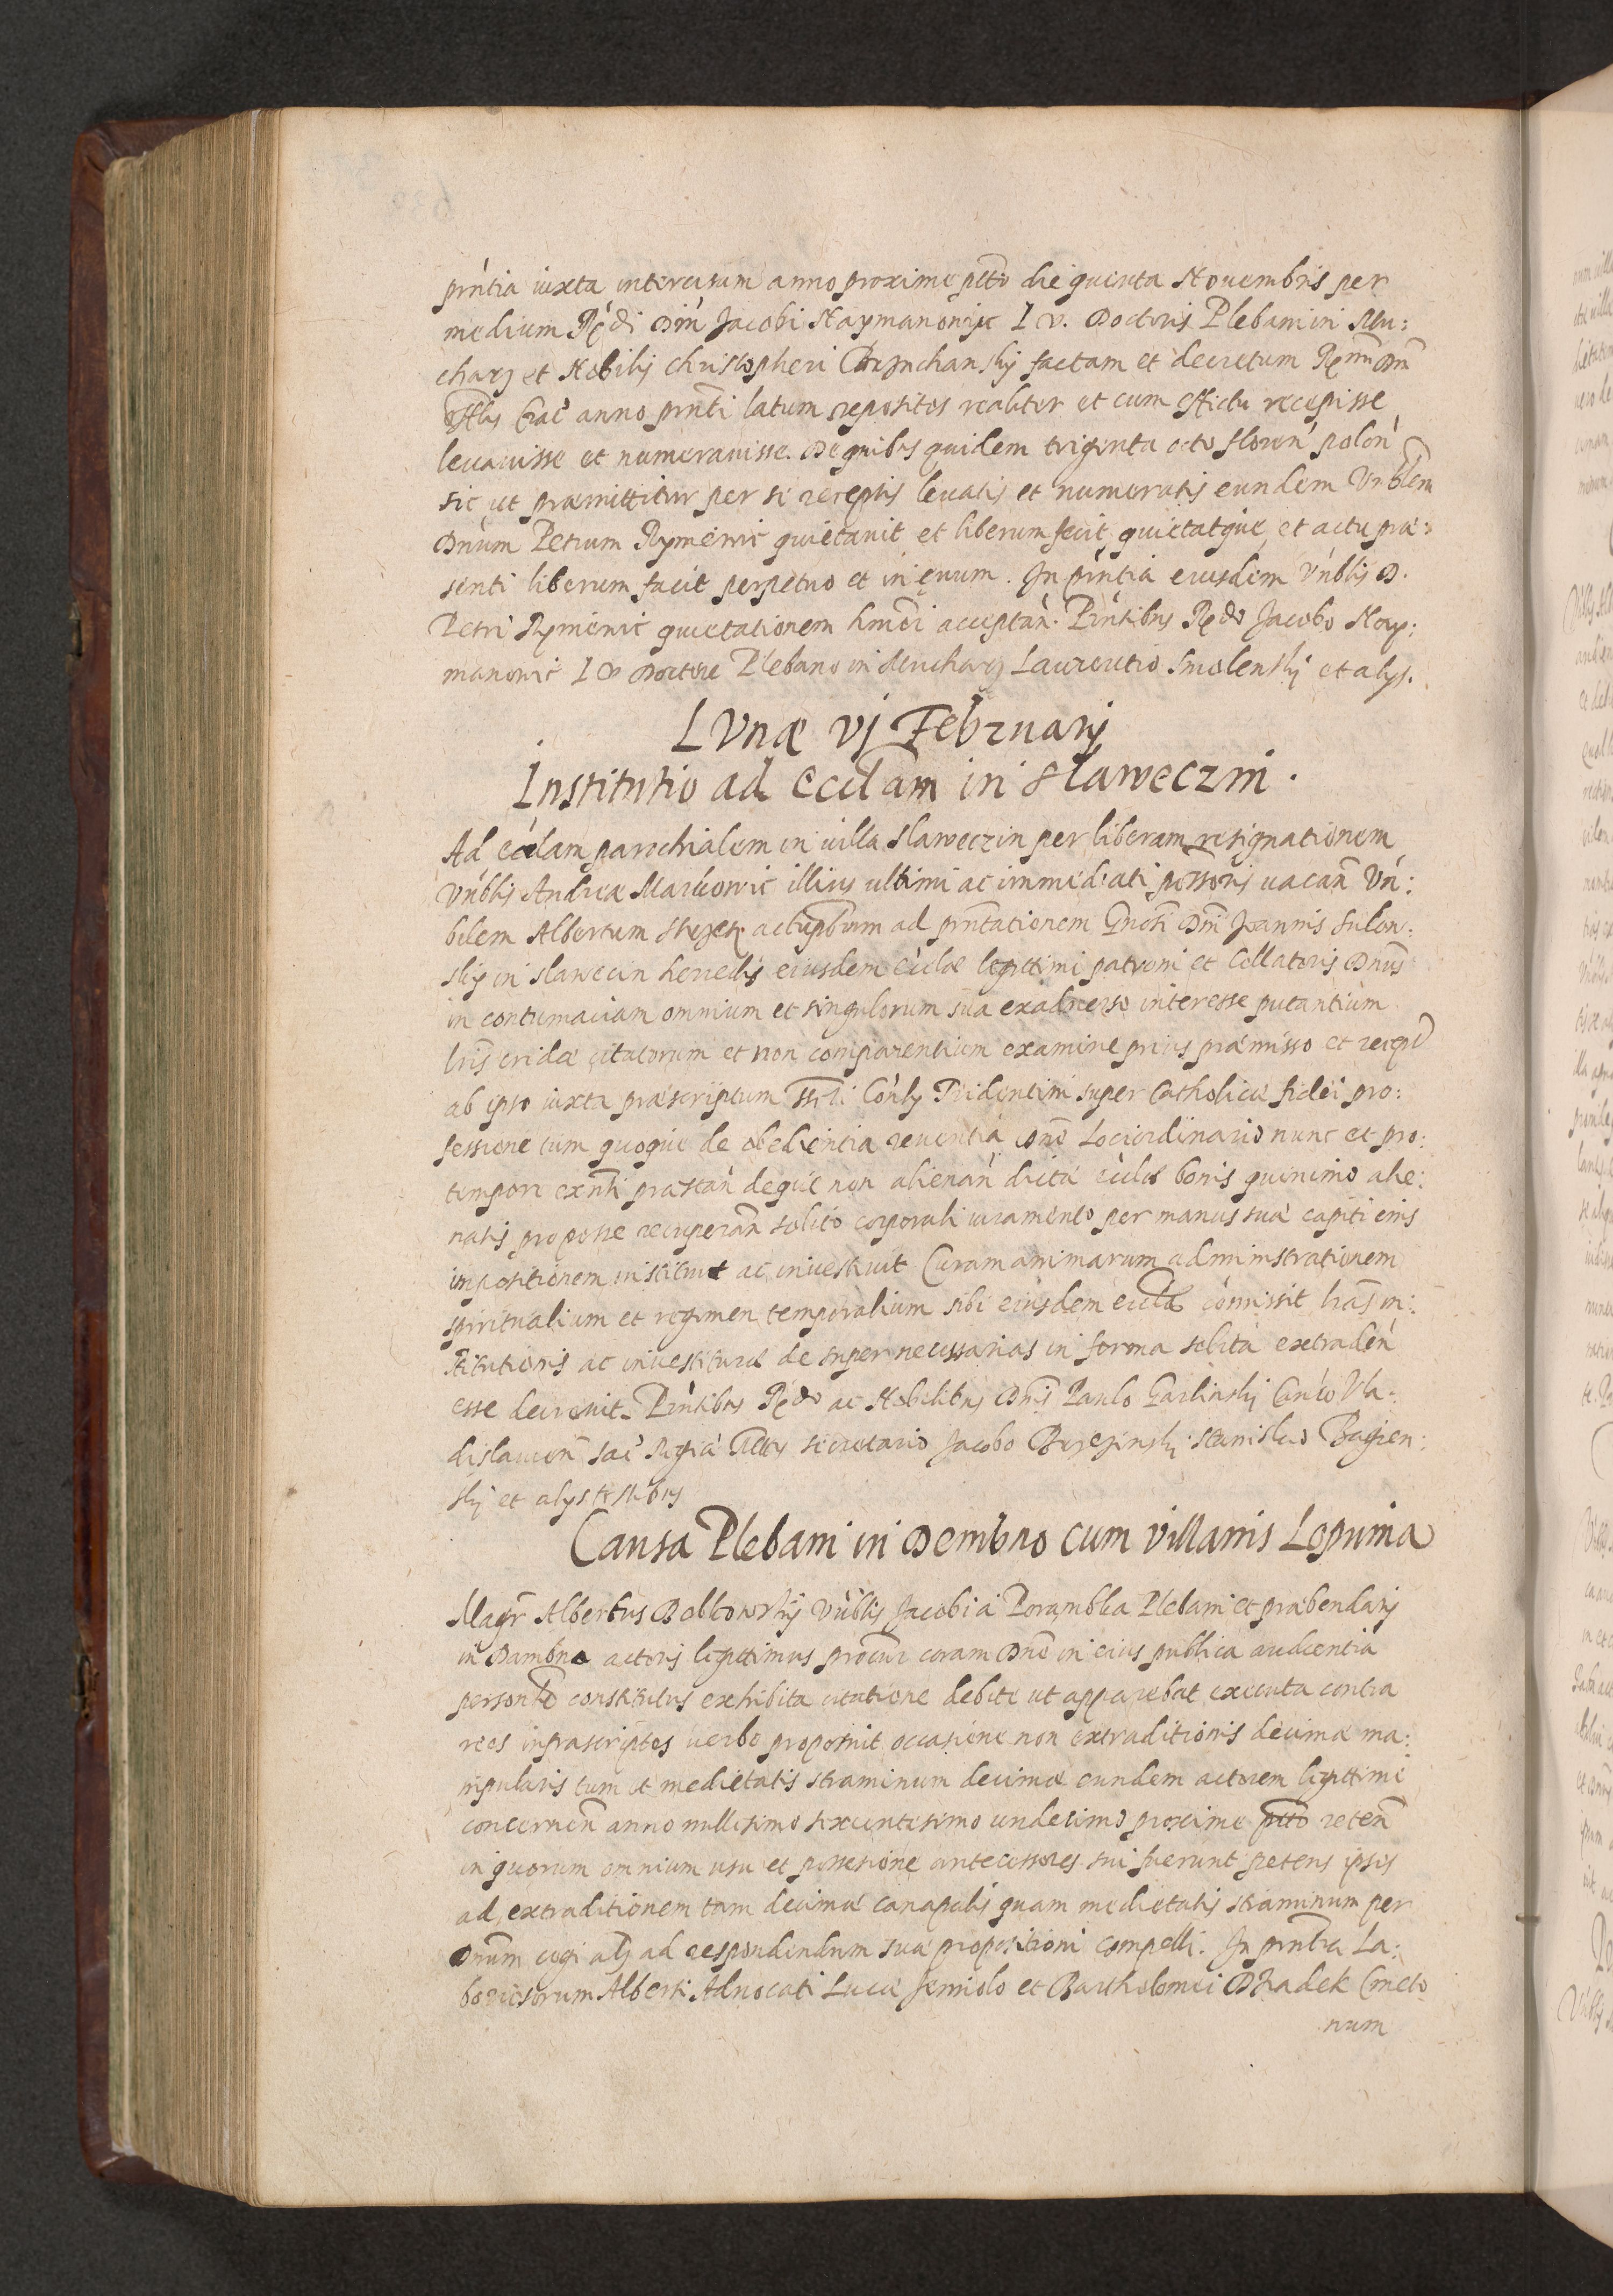 pr̃ntia iuxta intercisum anno proxime p̃tto die quinta Nouembris per
medium R̃ndi Dñi Jacobi Naymanowic I v. Doctoris Plebani in Mu:
charz et Nobilis Christopheri factam et decretum R̃mi Dñi
Crac̃ anno pr̃nti latum repositos realiter et cum effectu recepisse
leuauisse et numerauisse. De quibus quidem triginta octo floreñ poloñ
sic ut præmittitur per se receptis leuatis et numeratis eundem Vn̄blem
Dñum Petrum Rymewic quietauit et liberum fecit, quietatque et actu præ:
senti liberum facit perpetuo et in ęuum. In pñtia eiusdem Vñblis D.
Petri Rymewic quietationem hm̃oi acceptañ. Pñtibus R̃ndo Jacobo Nay:
manowic I v Doctore Plebano in Mucharz Laurentio Smolenskij et alys.
LVnæ vj Februarij
Institutio ad Eccl̃am in Slaweczin.
Ad eccl̃am parochialem in uilla Slaweczin per liberam resignationem
Vñblis Andreæ Markowic illius ultimi ac immediati poss̃oris uacañ Vñ:
bilem Albertum ad pr̃ntationem Gñosi Dñi Joannis Sulow:
skij in Slawecin heredis eiusdem eccl̃æ legittimi patroni et Collatoris Dñus
in contumaciam omnium et singulorum sua exaduerso interesse putantium
lr̃is cridæ citatorum et non comparentium examine prius præmisso et recepta
ab ipso iuxta præscriptum Conly Tridentini super Catholicæ fidei pro:
fessione tum quoque de obedientia reuerentia Dño Lociordinario nunc et pro:
tempore exñti præstañ deque non alienañ dictæ eccl̃æ bonis quinimo alie:
natis pro posse recuperañ solito corporali iuramento per manus suæ capiti eius
impositionem instituit ac inuestiuit Curam animarum administrationem
spiritualium et regimen temporalium sibi eiusdem eccl̃æ com̃isit lr̃as in:
stitutionis ac inuestituræ de super necessarias in forma solita extradeñ
esse decreuit. Pñtibus R̃ndo ac Nobilibus Dñis Paulo Garlinskij Cañco Vla:
dislauieñ Sac̃ Regiæ secretario Jacobo Brzezinskij Stanislao Bagien:
skij et alys testibus
Causa Plebani in Dembno cum villanis Lopuma
Magr̃ Albertus Bobkowskij Vñblis Jacobi a Porambka Plebani et præbendarij
in Dambno actoris legittimus procur̃ coram Dño in eius publica audientia
personl̃r constitutus exhibita citatione debite ut apparebat executa contra
reos infrascriptos uerbo proposuit occasione non extraditionis decimæ ma:
nipularis tum et medietatis straminum decimæ eundem actorem legittime
concerneñ anno millesimo sexcentesimo undecimo proxime p̃tto reteñ
in quorum omnium usu et possesione antecessores sui fuerunt petens ipsis
ad extraditionem tam decimæ canapalis quam medietatis straminum per
Dñum cogi alz̃ ad respondendum suæ propositioni compelli. In pr̃ntia La:
boriosorum Alberti Aduocati Lucæ Semiolo et Bartholomei Dziadek Cmeto
num